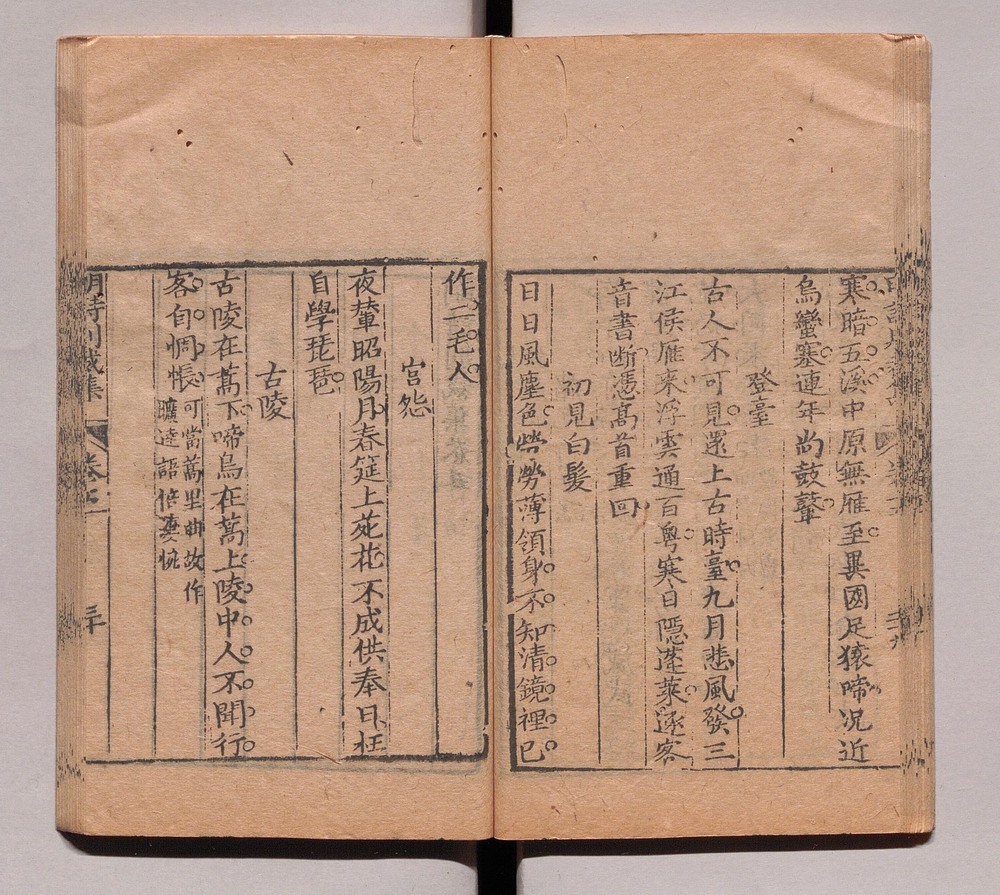 寒暗五溪中原無雁至異國足猿啼况近
烏蠻塞連年尚鼓鼙
登臺
古人不可見還上古時臺九月悲風發三
江侯雁來浮雲通百粤寒日隱蓬萊逐客
音書斷憑髙首重回
初見白髪
日日風塵色勞勞薄領身不知清鏡裡已
作二毛人
宫怨
夜輦昭陽月春筵上苑花不成供奉日枉
自學琵琶
古陵
古陵在蒿下啼烏在蒿上陵中人不聞行
客自惆悵可當蒿里曲故作
曠達語倍
明詩别裁集
卷十一
三十